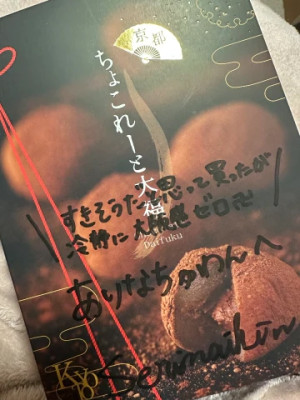 京都
ちょこれーと大福
Daifuku
すきそうだと思って買ったが
冷静に大阪感ゼロ卍
ありなちゅわんへ